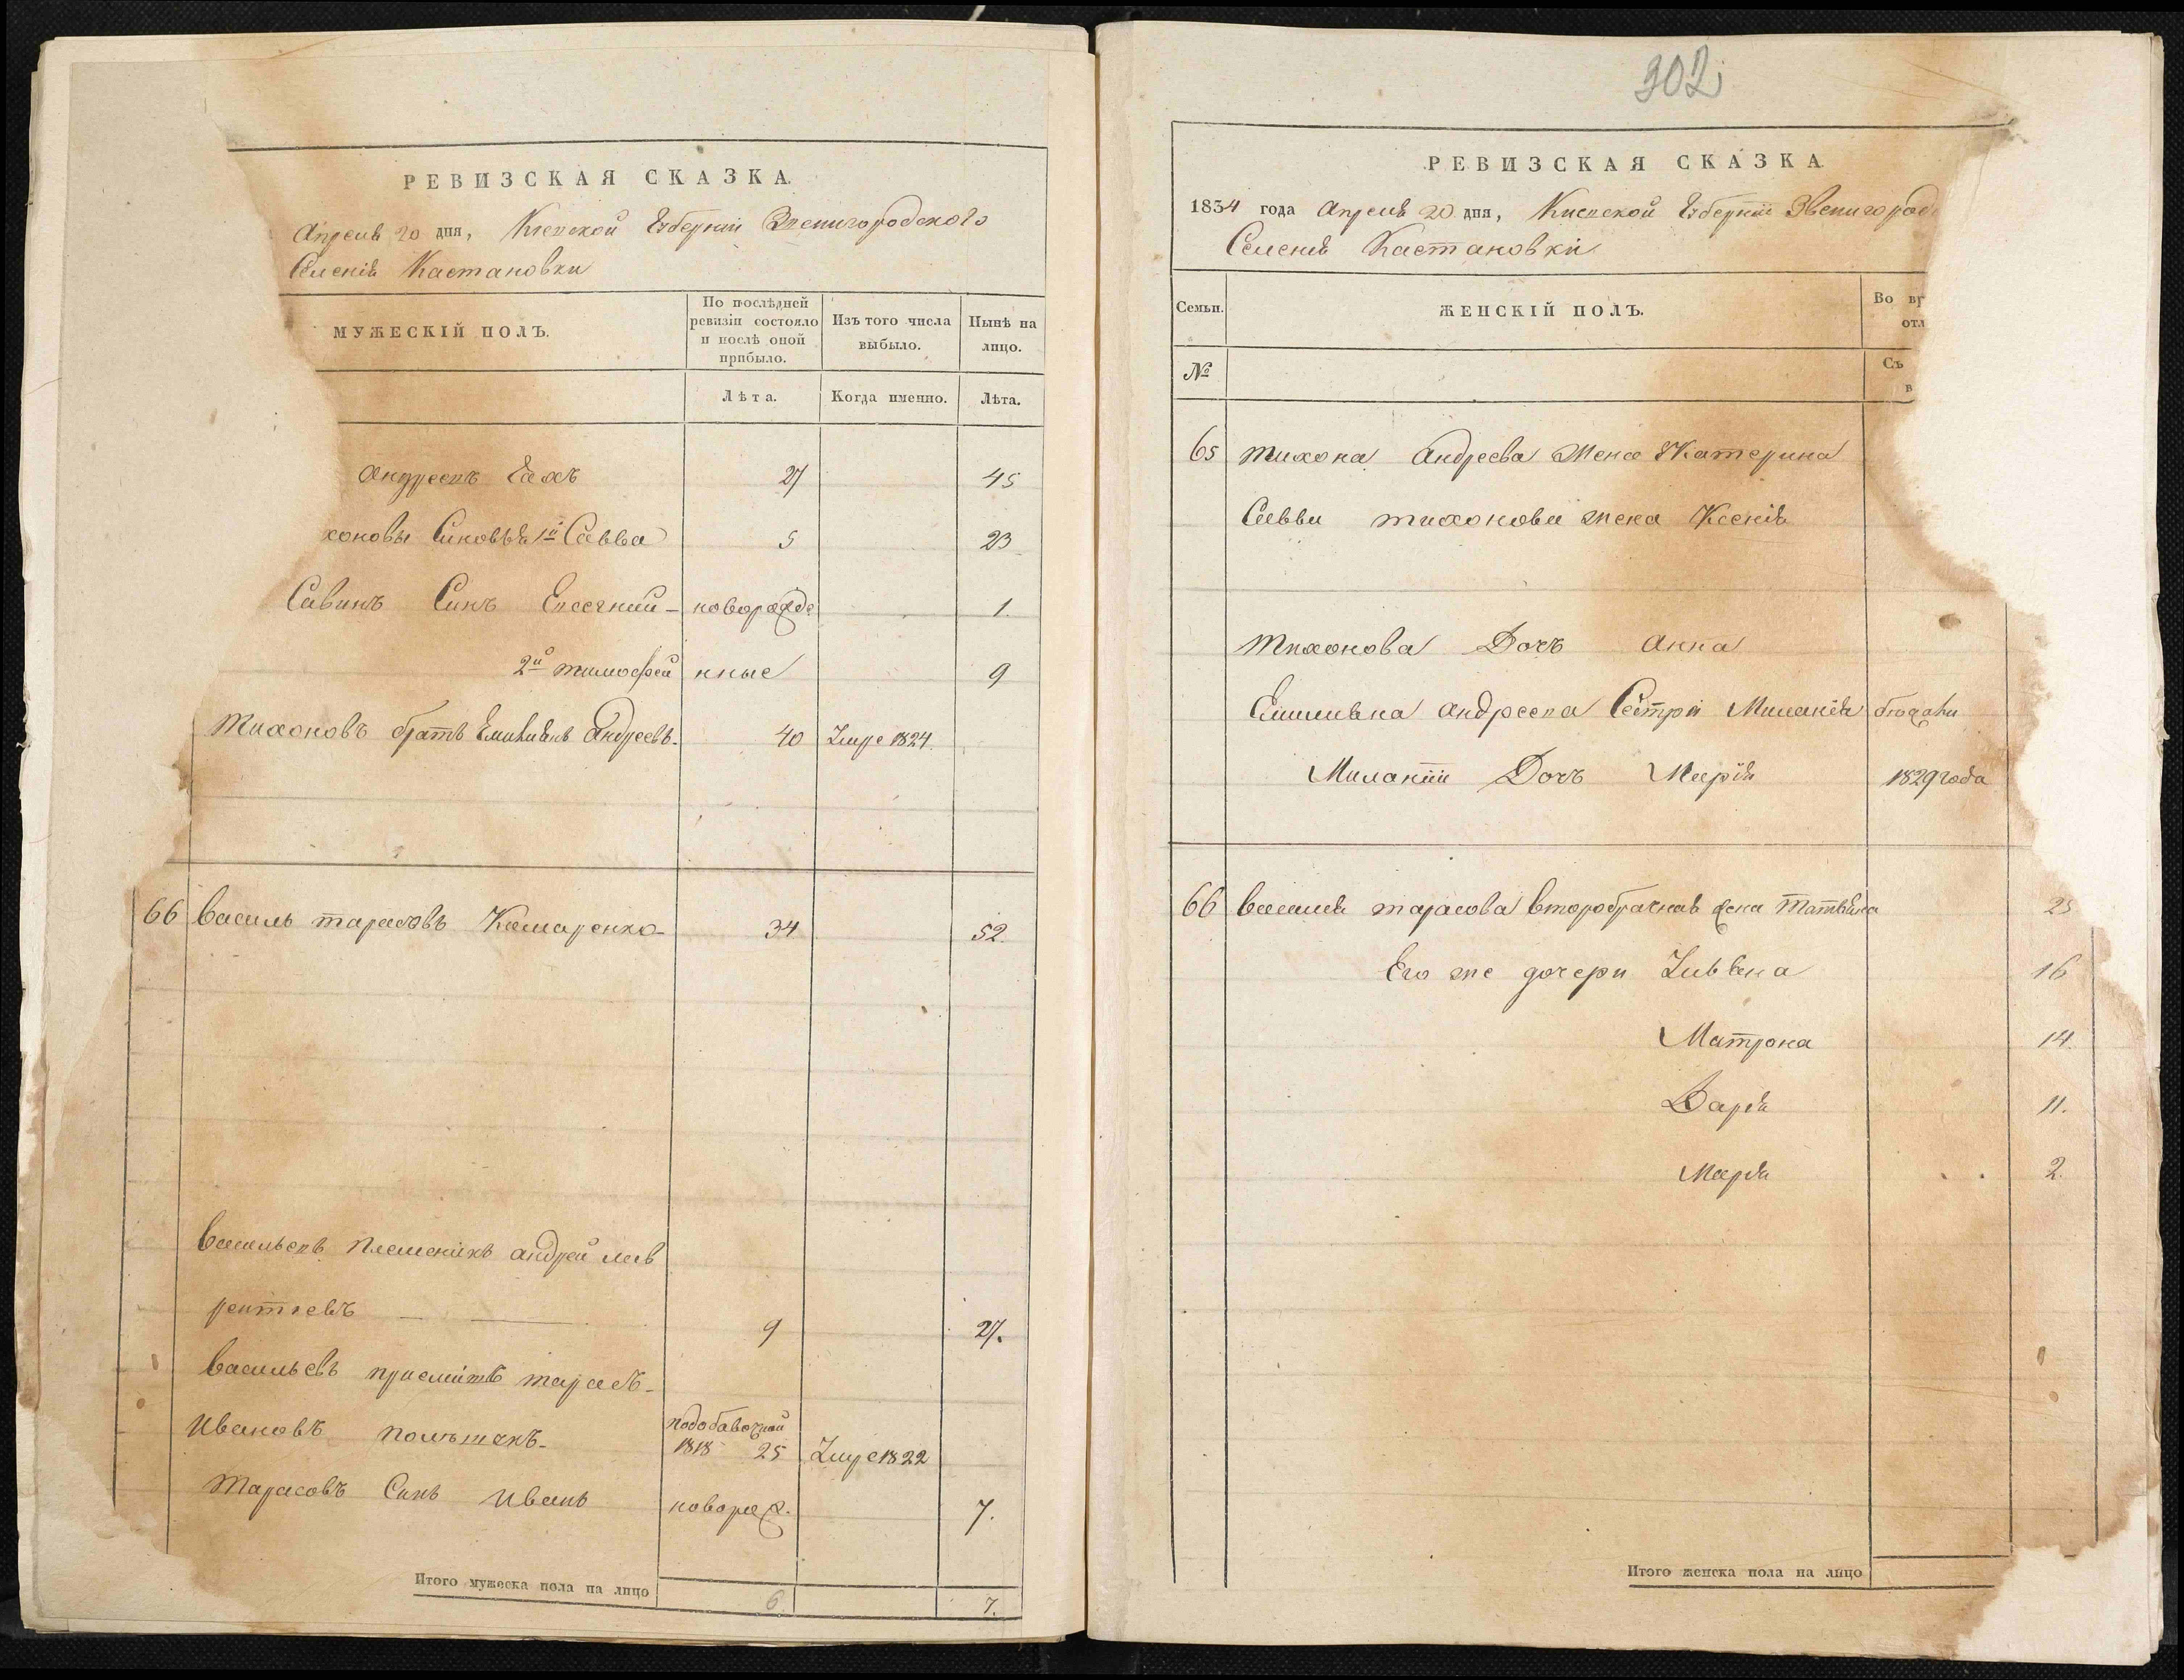 РЕВИЗСКАЯ СКАЗКА.
Апреля 20 дня, Киевской Губерніи Звенигородского
Селенія Кастановки
МУЖЕСКІЙ ПОЛЪ.
По послѣдней ревизіи состояло и послѣ оной прибыло.
Изъ того числа выбыло.
Нынѣ на лицо.
Лѣта.
Когда именно.
Лѣта.
Андреевъ 27 45
хоновы Синовья 1й Савва 5 23
Савинъ Синъ новорожде 1.
2й тимофей нные 9
Тихоновъ братъ Емилиянъ Андреевъ 40 Умре 1824.
66 Василь тарасовъ Комаренко 34 52.
Васильевъ Племеникъ андрей лав
рентиевъ 9 27.
Васильевъ приемишъ тарасъ
Ивановъ подобавочной 1818 25 Умре 1822
Тарасовъ Синъ Иванъ новорож. 7.
Итого мужеска пола на лицо 6 7.
302
РЕВИЗСКАЯ СКАЗКА
1834 года Апреля 20 дня, Киевской Губерніи Звенигород
Селенія Кастановки
Семьи.
ЖЕНСКІЙ ПОЛЪ.
Во вр
отл
№
Съ
в
65 тихона Андреева Жена Катерина
Саввы тихонова жена Ксенія
Тихонова Дочъ Анна
Емилияна андреева Сестра Миланія бѣжали
Миланіи Дочъ Марія 1829 года
66 Василия тарасова второбрачная жена Татьяна 25
Его же дочери Ульяна 16
Матрона 14.
Дарія 11.
Марія 2.
Итого женска пола на лицо